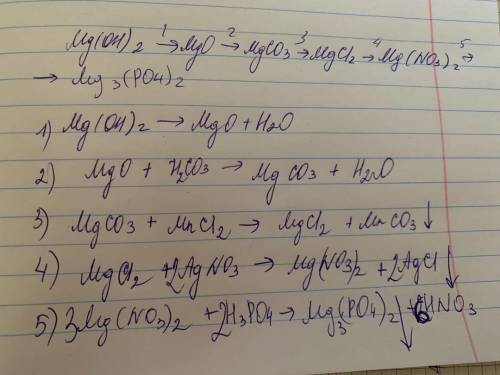 Mg(OH)₂ →¹ MgO →² MgCO₃ →³ MgCl₂ →⁴ Mg(NO₃)₂ →⁵
→ Mg₃(PO₄)₂
1) Mg(OH)₂ → MgO + H₂O
2) MgO + H₂CO₃ → MgCO₃ + H₂O
3) MgCO₃ + MnCl₂ → MgCl₂ + MnCO₃↓
4) MgCl₂ + 2AgNO₃ → Mg(NO₃)₂ + 2AgCl↓
5) 3Mg(NO₃)₂ + 2H₃PO₄ → Mg₃(PO₄)₂↓ + 6HNO₃